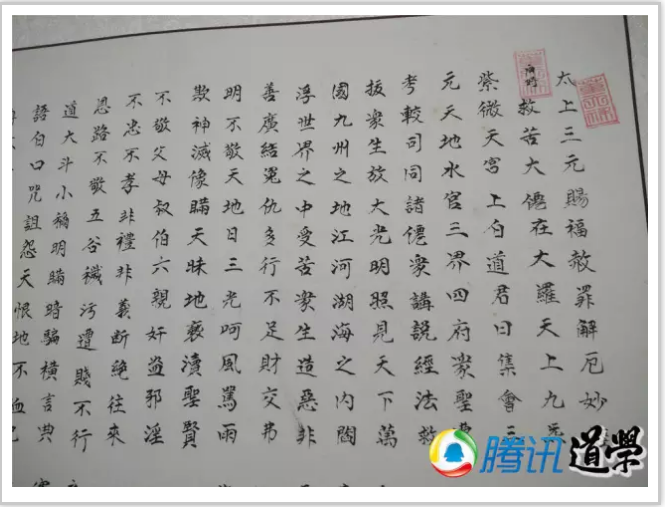 太上三元賜福赦罪解厄妙
救苦大僊在大羅天上九
紫微天宮上白道君曰集會三
元天地水官三界四府衆聖
考較司同諸僊衆講說經法救
拔衆生放大光明照見天下萬
國九州之地江河湖海之内閻
浮世界之中受苦衆生造惡非
善廣結冤仇多行不足財交弗
明不敬天地日三光呵風罵雨
欺神滅像瞞天昧地褻瀆聖賢
不敬父母叔伯六親奸盜邪淫
不忠不孝非禮非義斷絶往來
恩路不敬五谷穢污遭賤不行
道大斗小稱明瞞暗騙橫言典
語白口咒詛怨天恨地不
腾讯道學